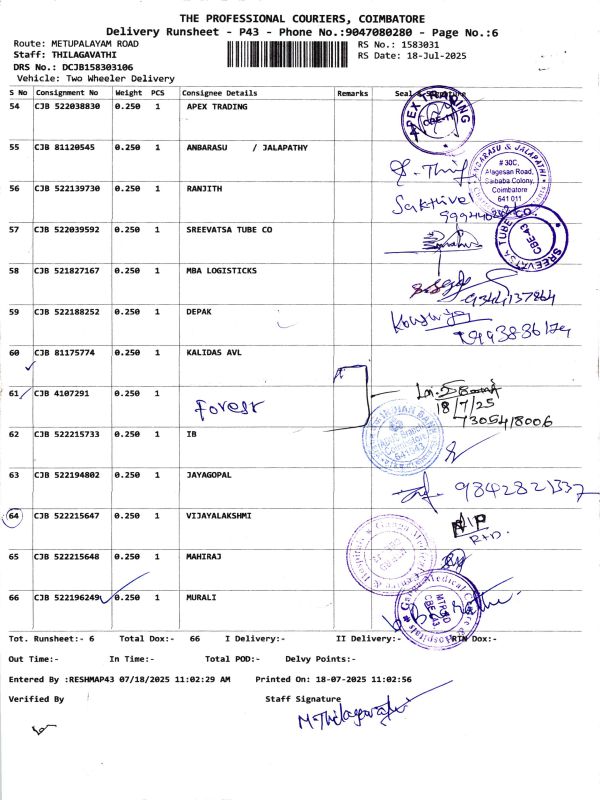 THE PROFESSIONAL COURIERS, COIMBATORE
Delivery Runsheet - P43 - Phone No.:9047080280 - Page No.:6
Route: METUPALAYAM ROAD RS No.: 1583031
Staff: THILAGAVATHI RS Date: 18-Jul-2025
DRS No.: DCJB158303106
Vehicle: Two Wheeler Delivery
S No Consignment No Weight PCS Consignee Details Remarks Seal & Signature
54 CJB 522038830 0.250 1 APEX TRADING
APEX TRADING
55 CJB 81120545 0.250 1 ANBARASU / JALAPATHY
ANBARASU & JALAPATHI
# 30C,
Alagesan Road,
Saibaba Colony,
Coimbatore
641 011
56 CJB 522139730 0.250 1 RANJITH
Sakthivel
57 CJB 522039592 0.250 1 SREEVATSA TUBE CO
SREEVATSA TUBE CO.
CBE-43
58 CJB 521827167 0.250 1 MBA LOGISTICKS
9344137864
59 CJB 522188252 0.250 1 DEPAK
60 CJB 81175774 0.250 1 KALIDAS AVL
61 CJB 4107291 0.250 1
Forest
18/7/25
7305418006
62 CJB 522215733 0.250 1 IB
641043
63 CJB 522194802 0.250 1 JAYAGOPAL
9842821337
64 CJB 522215647 0.250 1 VIJAYALAKSHMI
65 CJB 522215648 0.250 1 MAHIRAJ
66 CJB 522196249 0.250 1 MURALI
MTR RD
CBE-43
Tot. Runsheet:- 6 Total Dox:- 66 I Delivery:- II Delivery:- RTN Dox:-
Out Time:- In Time:- Total POD:- Delvy Points:-
Entered By :RESHMAP43 07/18/2025 11:02:29 AM Printed On: 18-07-2025 11:02:56
Verified By Staff Signature
M.Thilagavathi